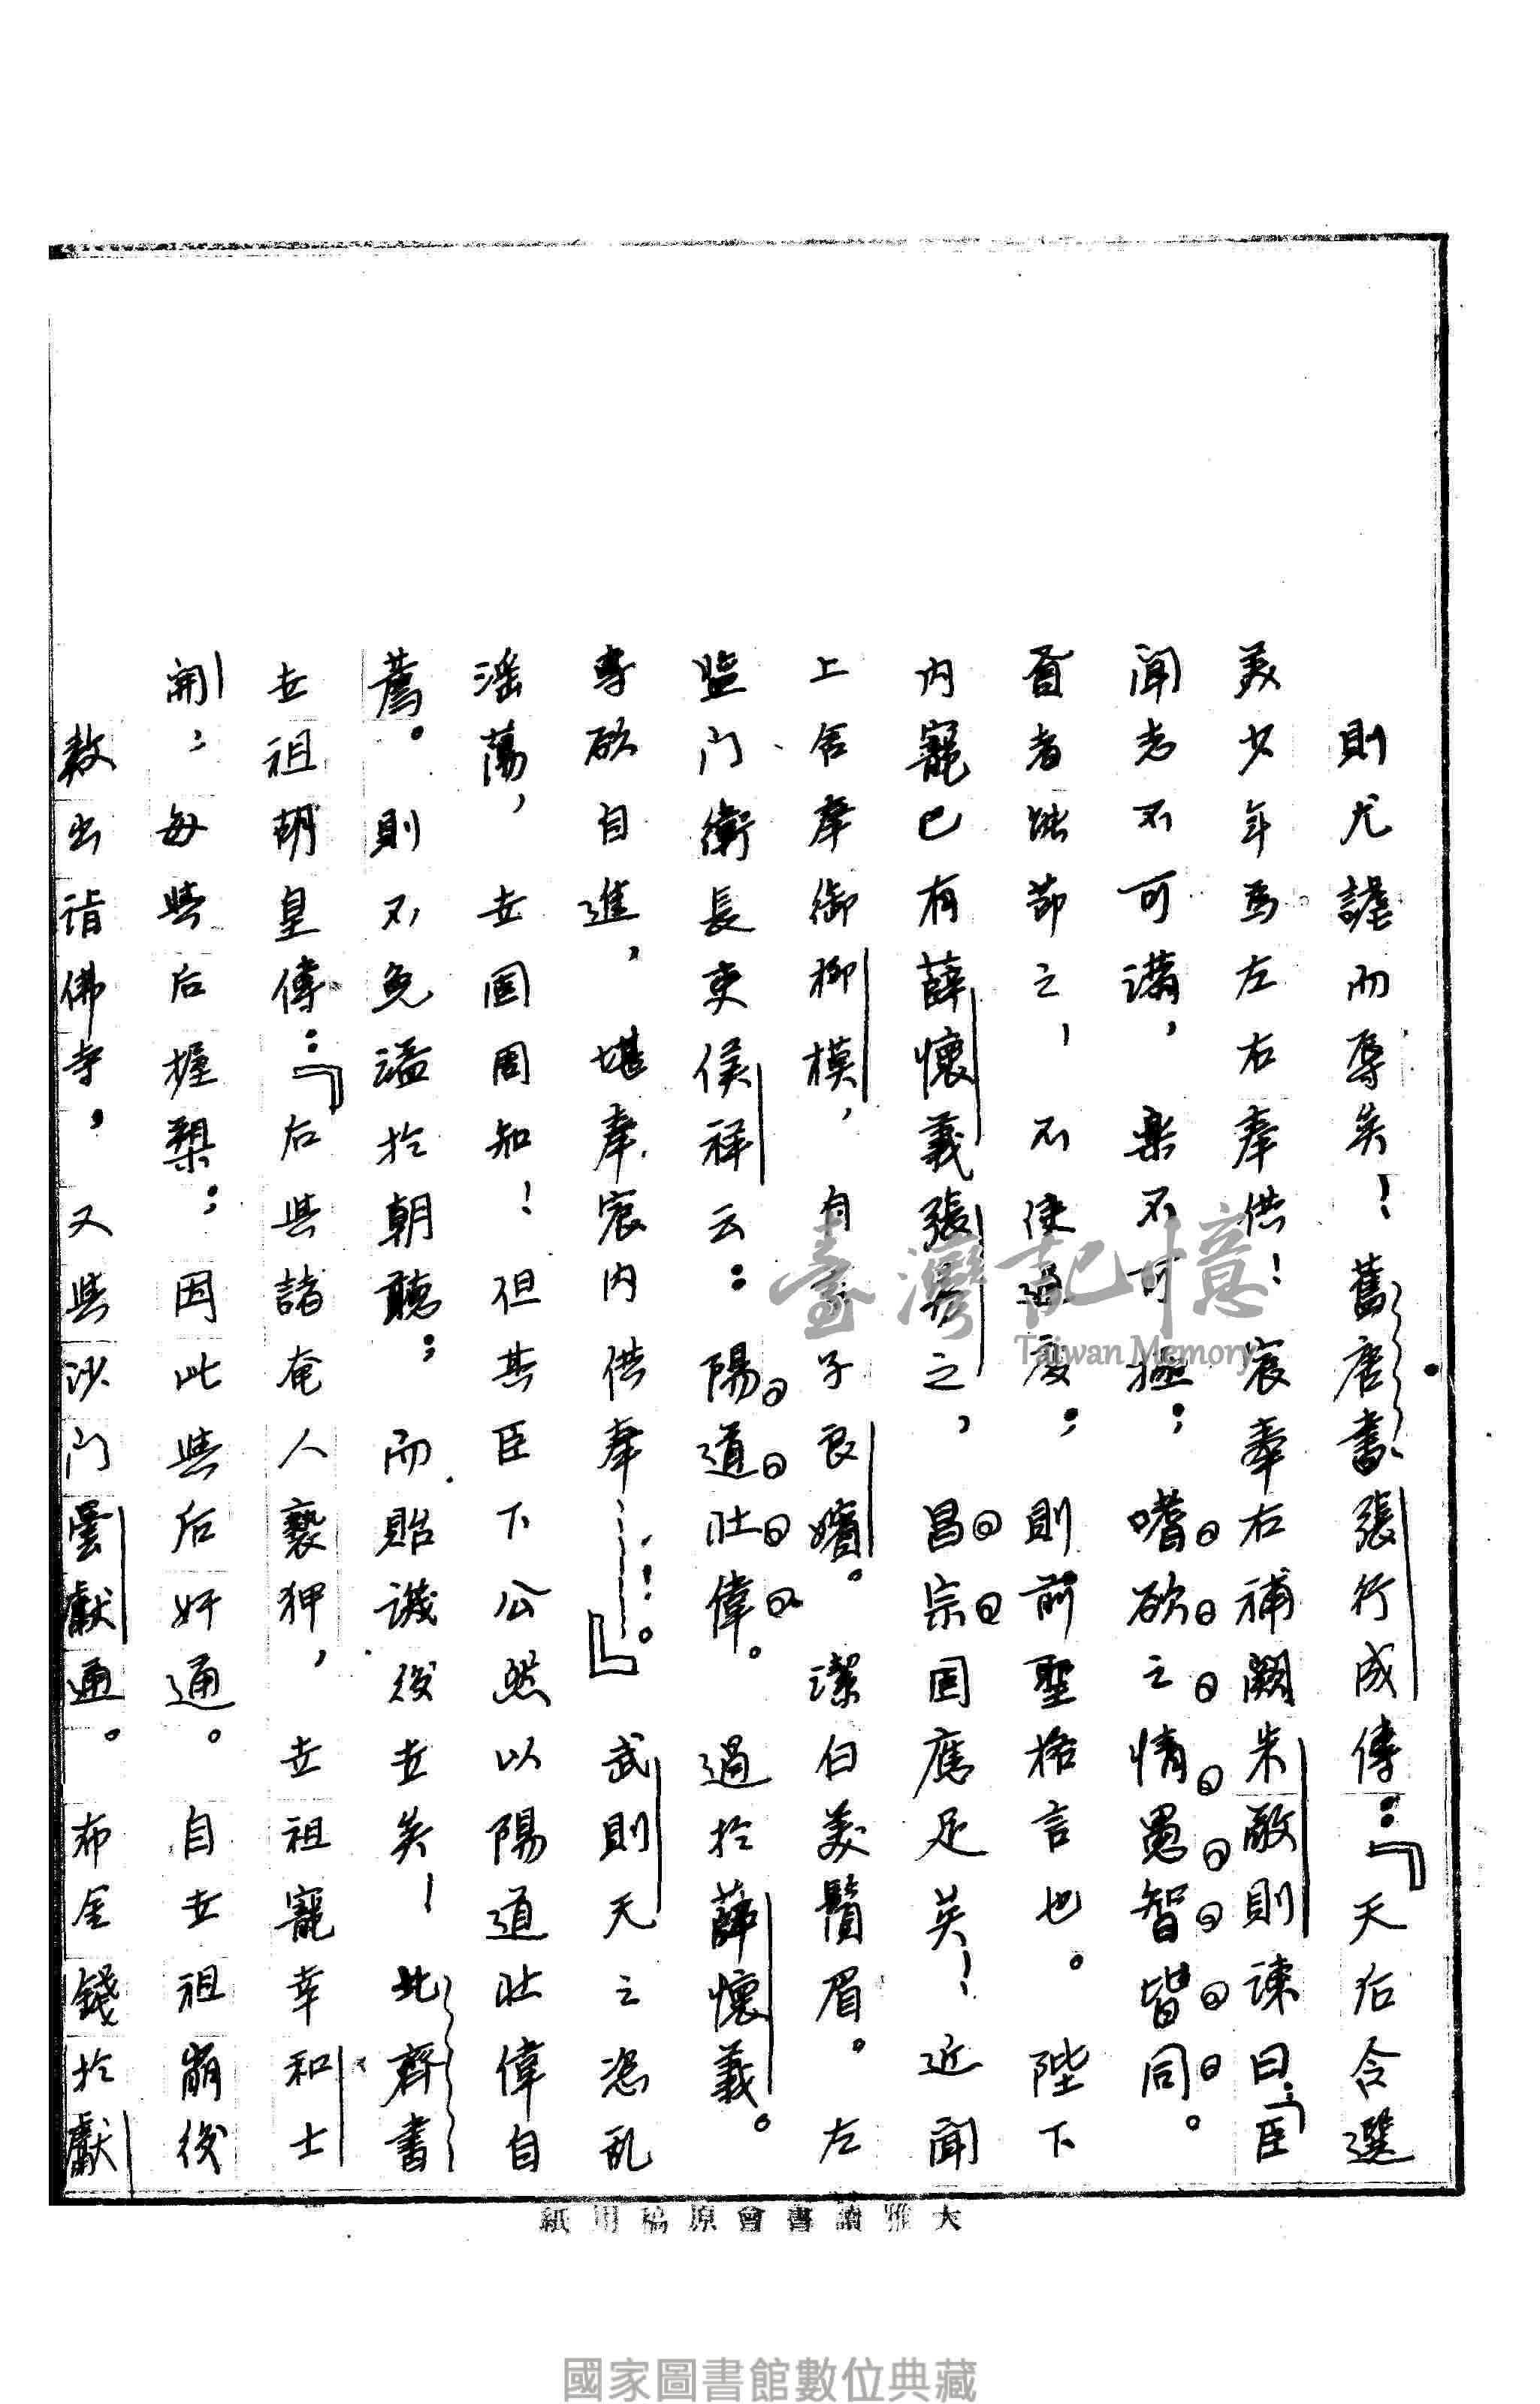 則尤謔而辱矣！舊唐書張行成傳：『天后令選
美少年為左右奉宸供奉！右補闕朱敬則諫曰：「臣
聞志不可满，樂不可極；嗜欲之情愚智皆同。
賢者能節之，不使過度；則前聖格言也。陛下
內寵已有薛懷義張易之，昌宗固應足矣！近聞
上舍奉御柳模，自言子良嬪。潔白美鬚眉。左
監门衛長吏侯祥云：陽道壯偉。過於薛懷義。
專欲自進，堪奉宸內供奉……。』武則天之恣乱
淫蕩，世固周知！但其臣下公然以陽道壯偉自
薦。則不免溢於朝聽；而貽譏後世矣！北齊書
世祖胡皇傳：『后與諸奄人褻狎，世祖寵幸和士
開，每與后握槊；因此與后奸通。自世祖崩後
数出诣佛寺，又與沙门曇獻通。布金錢於獻
大雅讀書會原稿用紙
臺灣記憶
Taiwan Memory
國家圖書館數位典藏